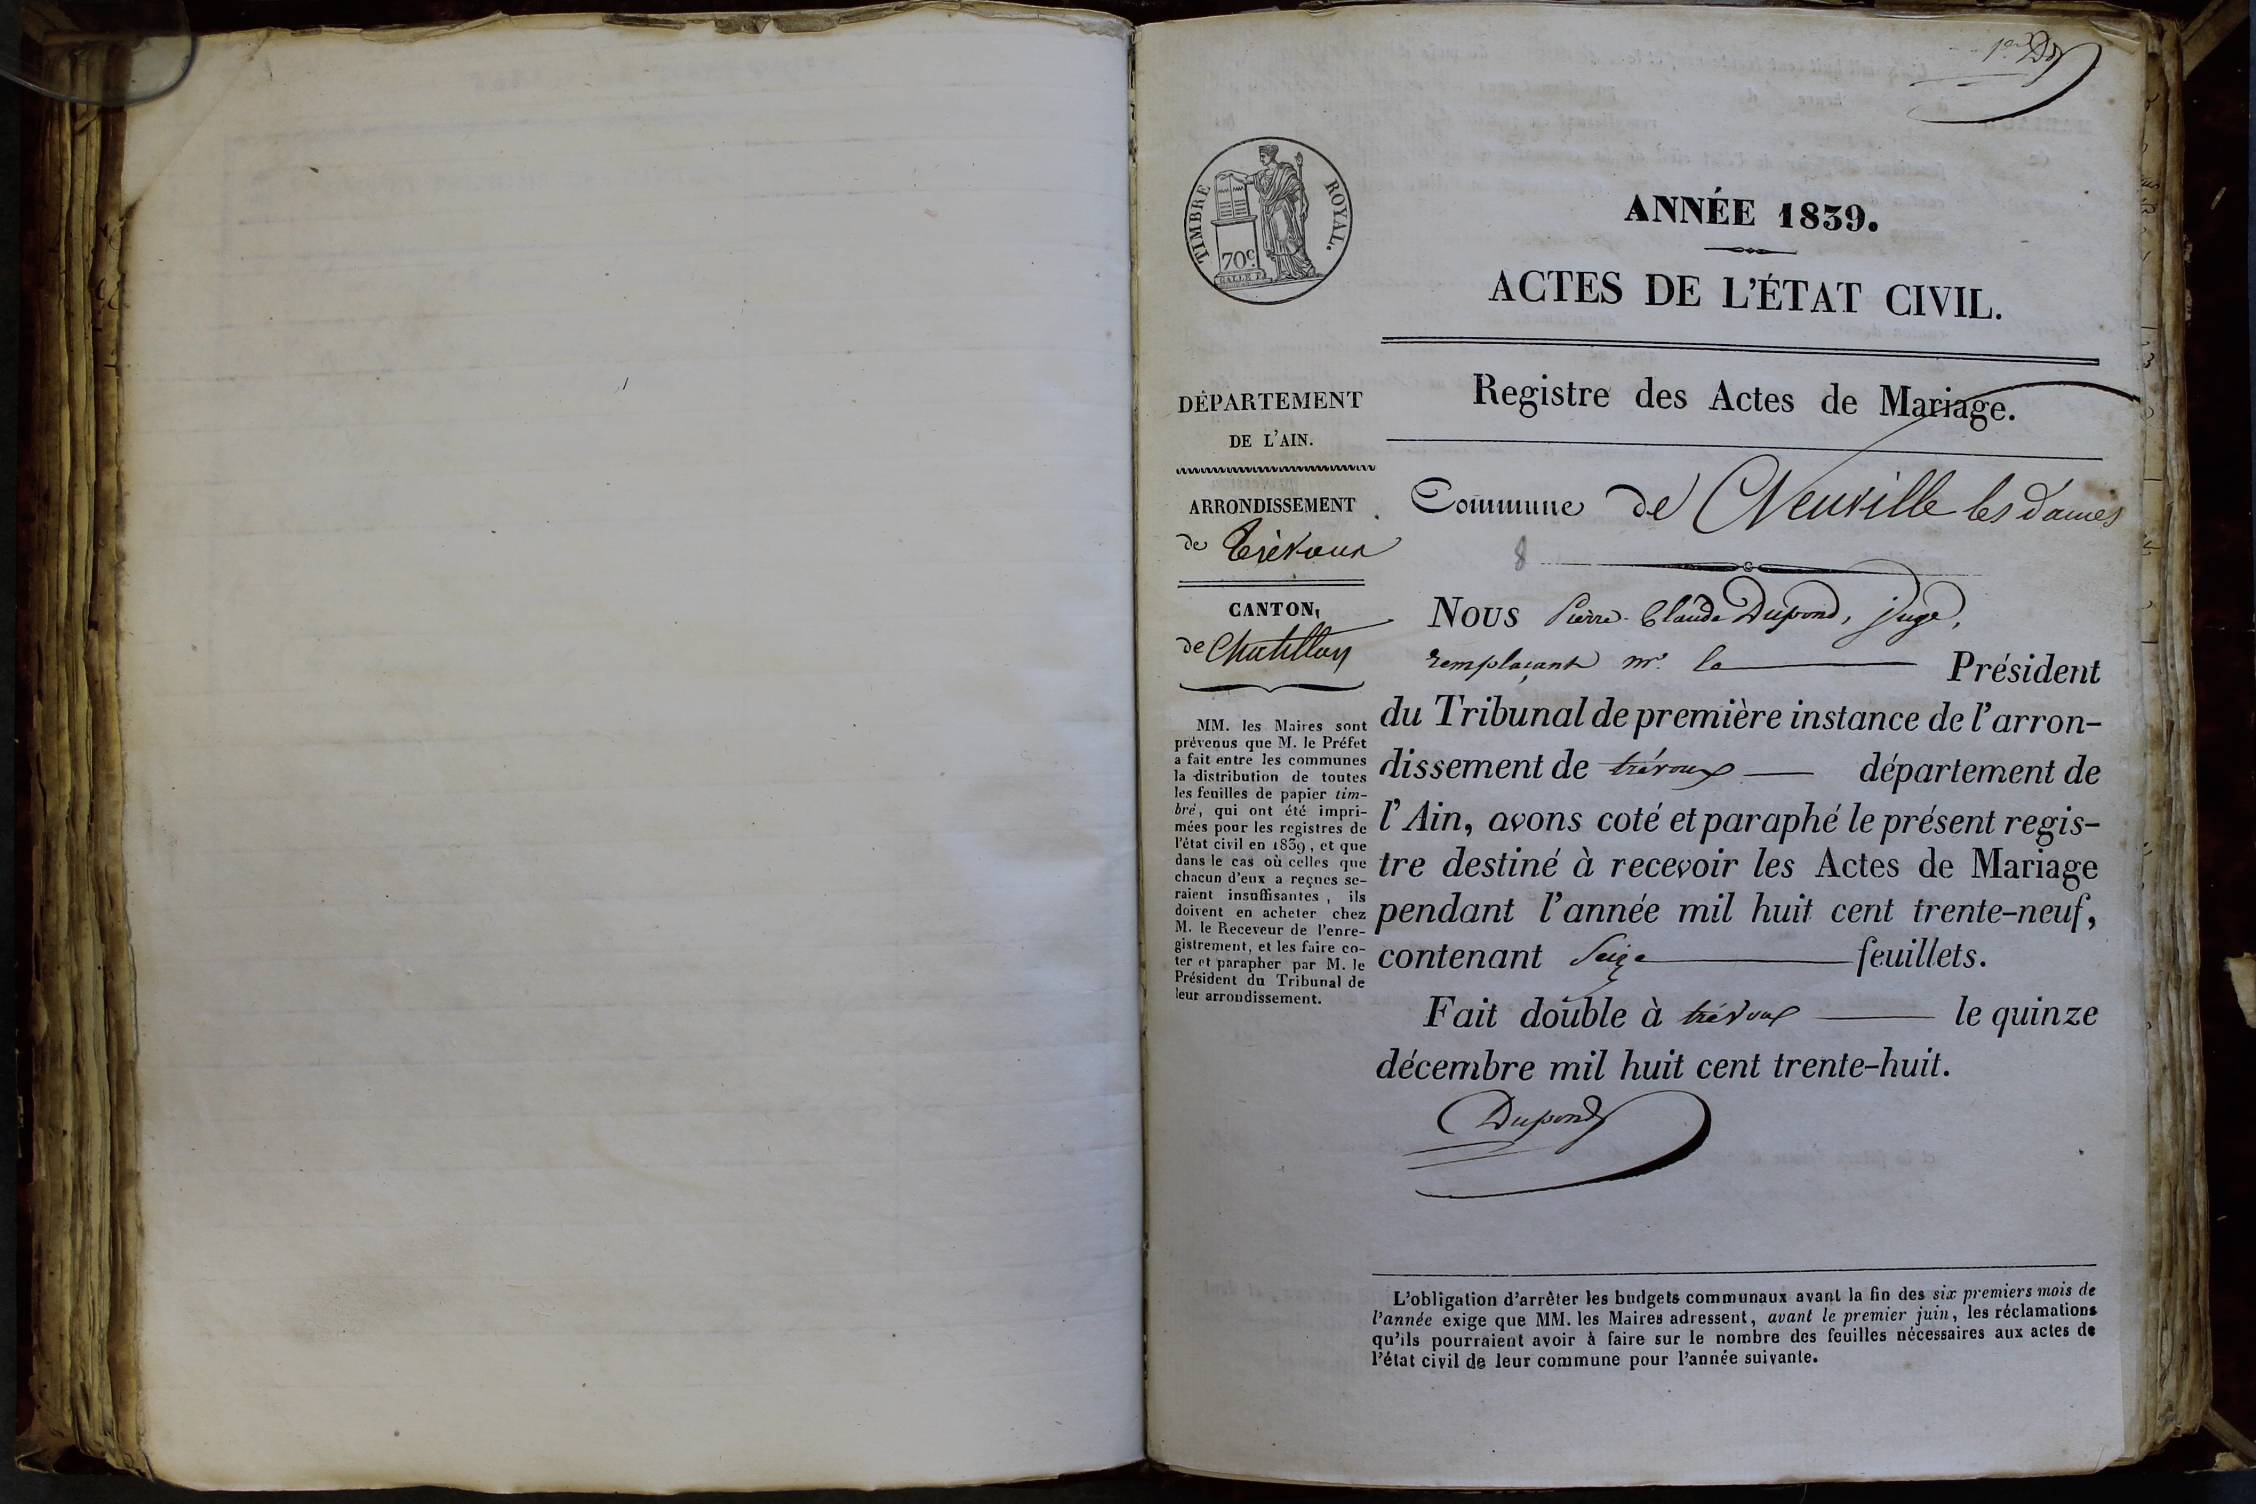 1er Dd
TIMBRE ROYAL.
70c.
ANNÉE 1839.
ACTES DE L'ÉTAT CIVIL.
Registre des Actes de Mariage.
DÉPARTEMENT
DE L'AIN.
ARRONDISSEMENT
de Trévoux
CANTON,
de Chatillon
MM. les Maires sont
prévenus que M. le Préfet
a fait entre les communes
la distribution de toutes
les feuilles de papier tim-
bré, qui ont été impri-
mées pour les registres de
l'état civil en 1839, et que
dans le cas où celles que
chacun d'eux a reçues se-
raient insuffisantes, ils
doivent en acheter chez
M. le Receveur de l'enre-
gistrement, et les faire co-
ter et parapher par M. le
Président du Tribunal de
leur arrondissement.
Commune de Neuville les Dames
8
NOUS Pierre-Claude Dupond, juge,
remplaçant mr. le Président
du Tribunal de première instance de l'arron-
dissement de trévoux département de
l'Ain, avons coté et paraphé le présent regis-
tre destiné à recevoir les Actes de Mariage
pendant l'année mil huit cent trente-neuf,
contenant Seize feuillets.
Fait double à trévoux le quinze
décembre mil huit cent trente-huit.
Dupond
L'obligation d'arrêter les budgets communaux avant la fin des six premiers mois de
l'année exige que MM. les Maires adressent, avant le premier juin, les réclamations
qu'ils pourraient avoir à faire sur le nombre des feuilles nécessaires aux actes de
l'état civil de leur commune pour l'année suivante.